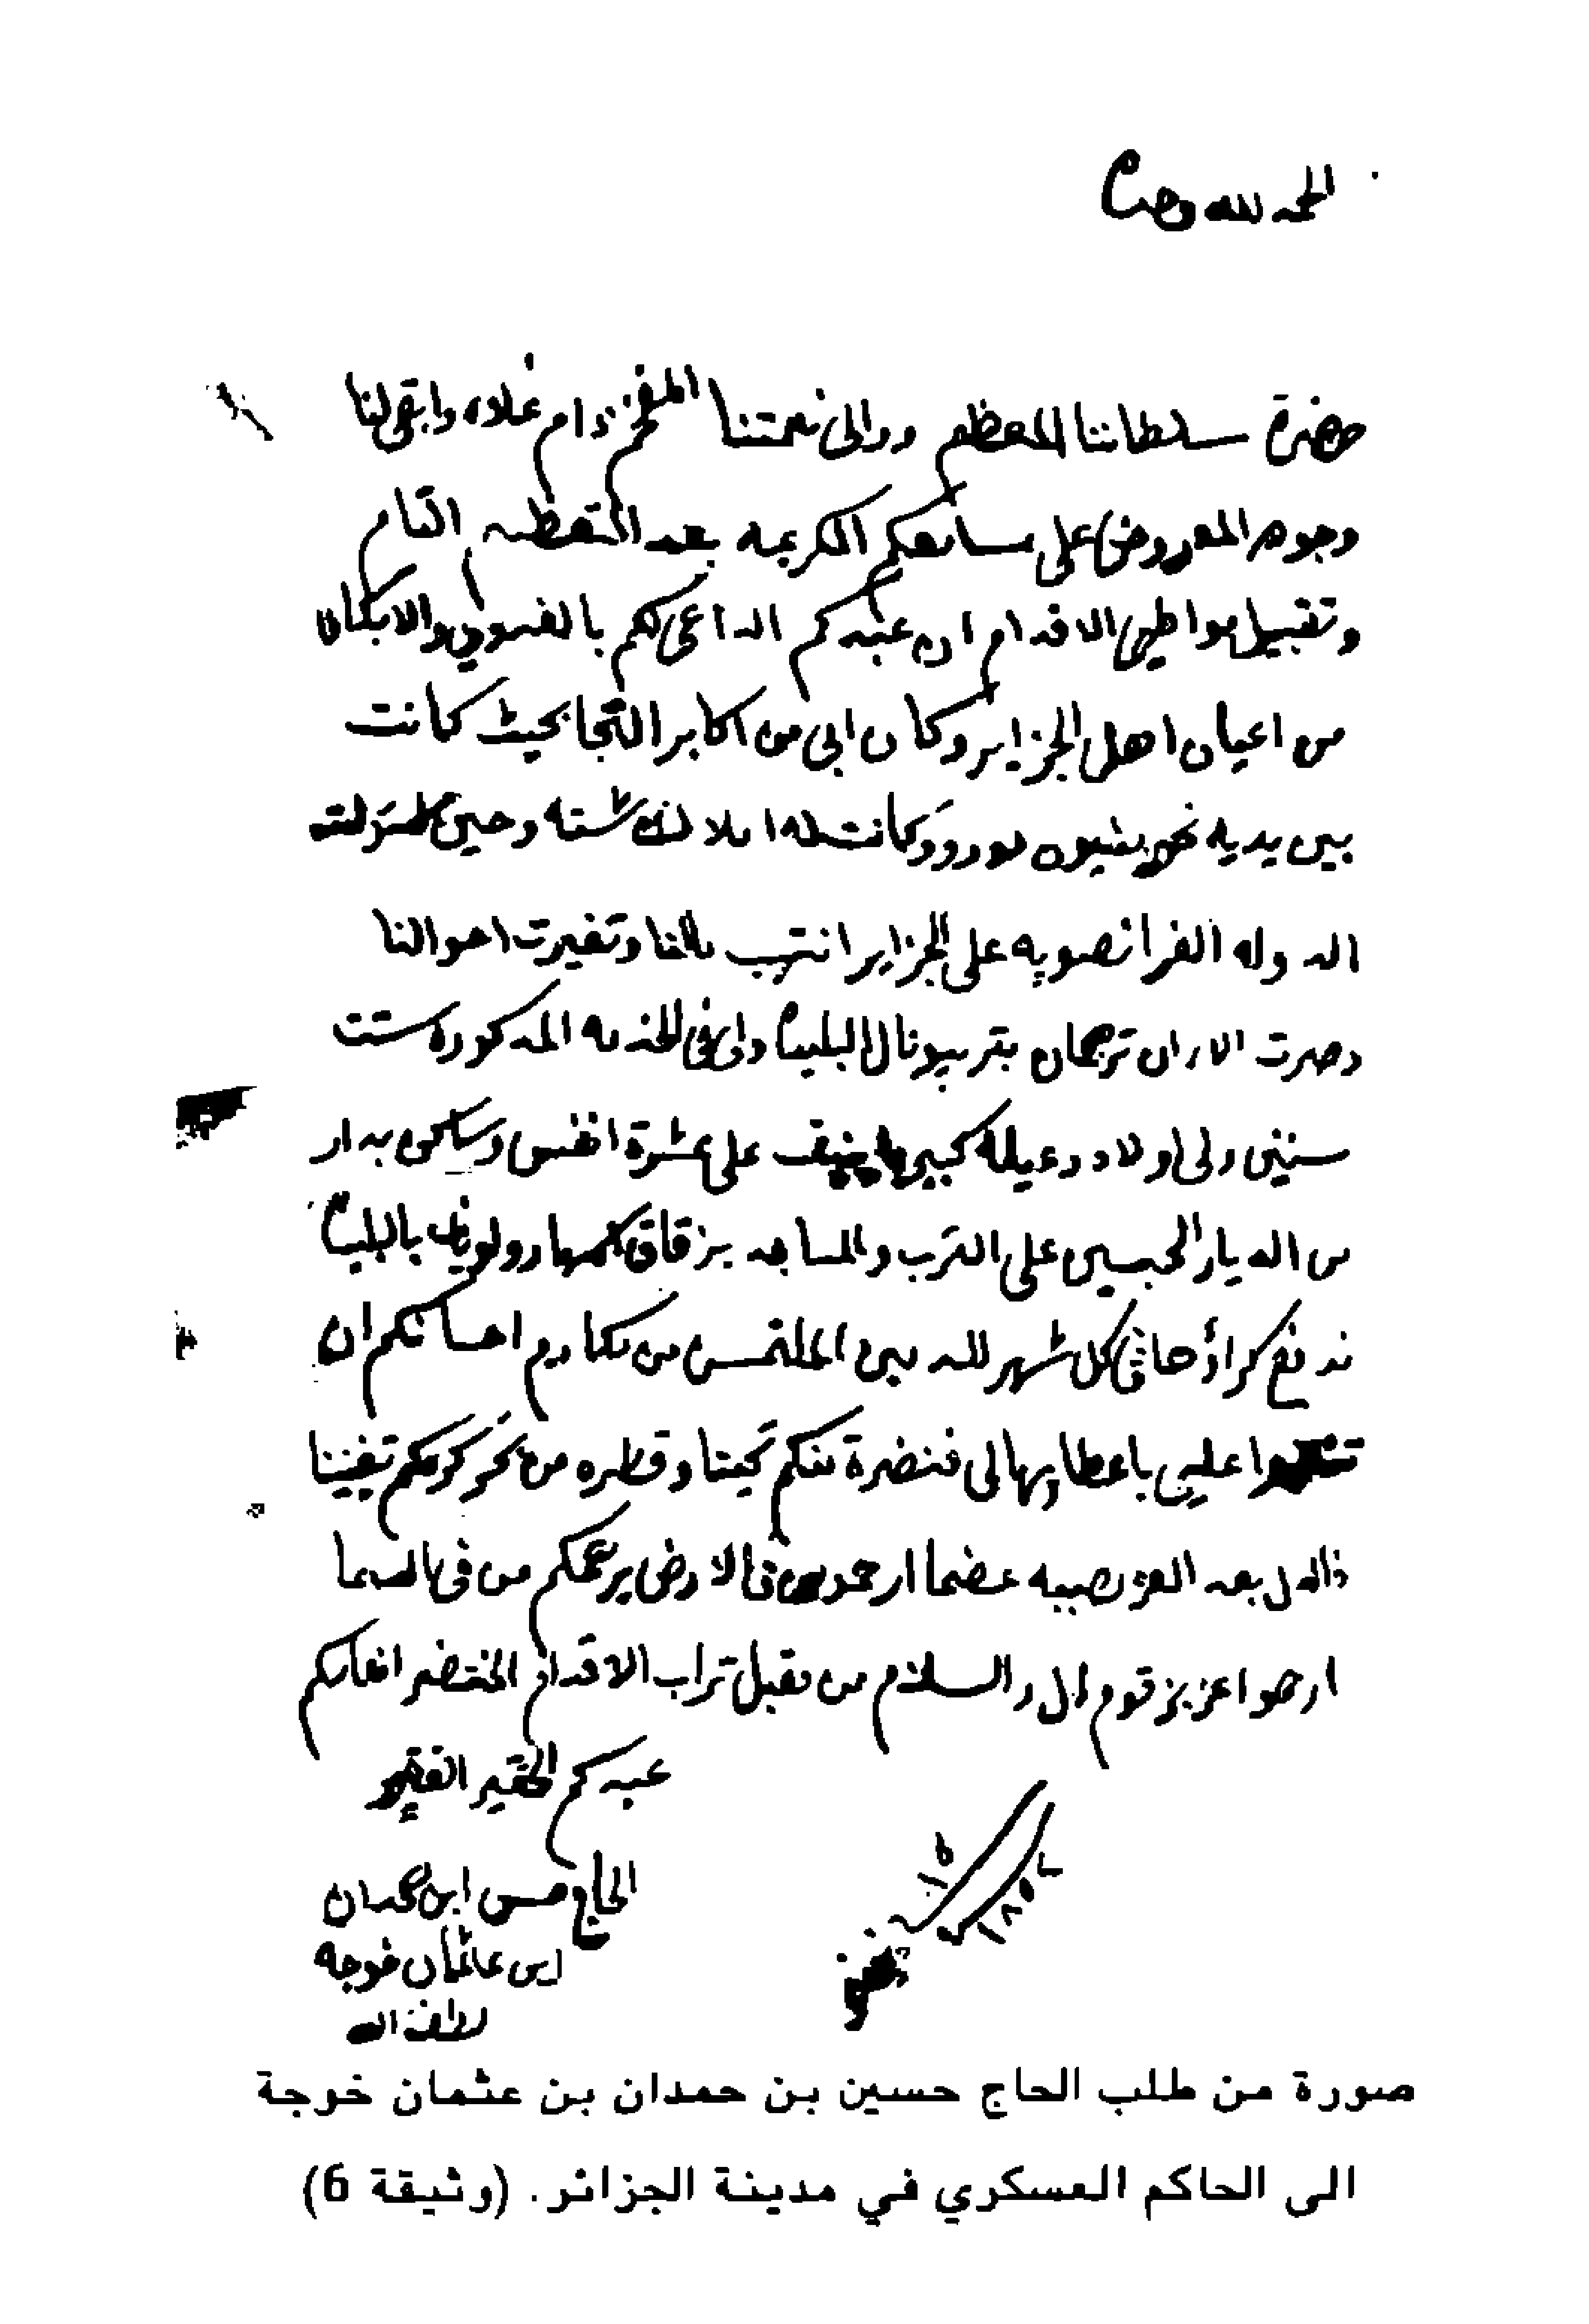 الحمد لله وحده
حضرة سلطاننا المعظم ووالى نعمتنا المفخم دام علاه وابقى لنا
وجوده المعروض على مسامعكم الكريمه بعد التعظيم التام
وتقبيل مواطي الاقدام ان عبدكم الداعى لكم بالغدو والابكار
من اعيان اهل الجزاير وكان ابى من اكابر التجار بحيث كانت
بين يديه وكانت له املاك شته وحين
الدوله الفرانصويه على الجزاير وتغيرت احوالنا
وصرت الاان ترجمان بتريبونال البليدة ولى فى الخدمه المدكوره ستت
سنين ولى اولاد وعيلة كبيرة على عشرة انفس وساكن بدار
من الديار الحبسين على الترب والمساجد بزقاق بالبليدة
ندفع كراؤها فى كل شهر لله الملتمس من مكارم احسانكم ان
عليى باعطايها لى فنضرة منكم وقطره من بحر كرمكم تغنينا
بعد العز ارحمو من فى الارض يرحمكم من فى السما
ارحموا عزيز قوم ذل والسلام من مقبل تراب الاقدام
عبدكم الحقير الفقير
الحاج حسن ابن حمدان
ابن عاثمان خوجه
لطف الله
صورة من طلب الحاج حسين بن حمدان بن عثمان خوجة
الى الحاكم العسكري في مدينة الجزائر. (وثيقة 6)